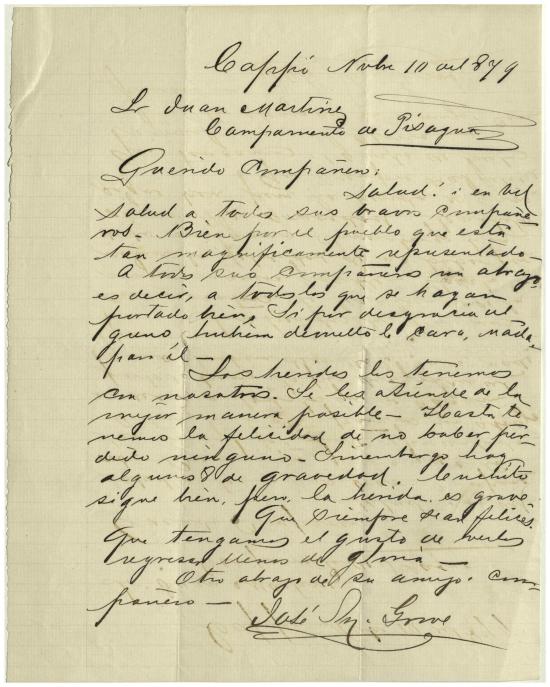 Coppió Nvbre 10 del 879
Sr Juan Martinez
Campamento de Pisagua
Querido Compañero:
Salud! i en Ud
salud a todos sus bravos compañe
ros. Bien por el pueblo que está
tan magnificamente representado—
A todos sus compañeros un abrazo
es decir, a todos los que se hayan
portado bien. Si por desgracia al
guno hubiera devuelto la cara, nada
para él—
Los heridos los tenemos
con nosotros. Se les atiende de la
mejor manera posible— Hasta te
nemos la felicidad de no haber per
dido ninguno. Sinembargo hay
algunos 8 de gravedad.
sigue bien, pero, la herida es grave
Que siempre sean felices.
Que tengamos el gusto de verlos
regresar llenos de gloria—
Otro abrazo de su amigo i com
pañero—
José M. Grove